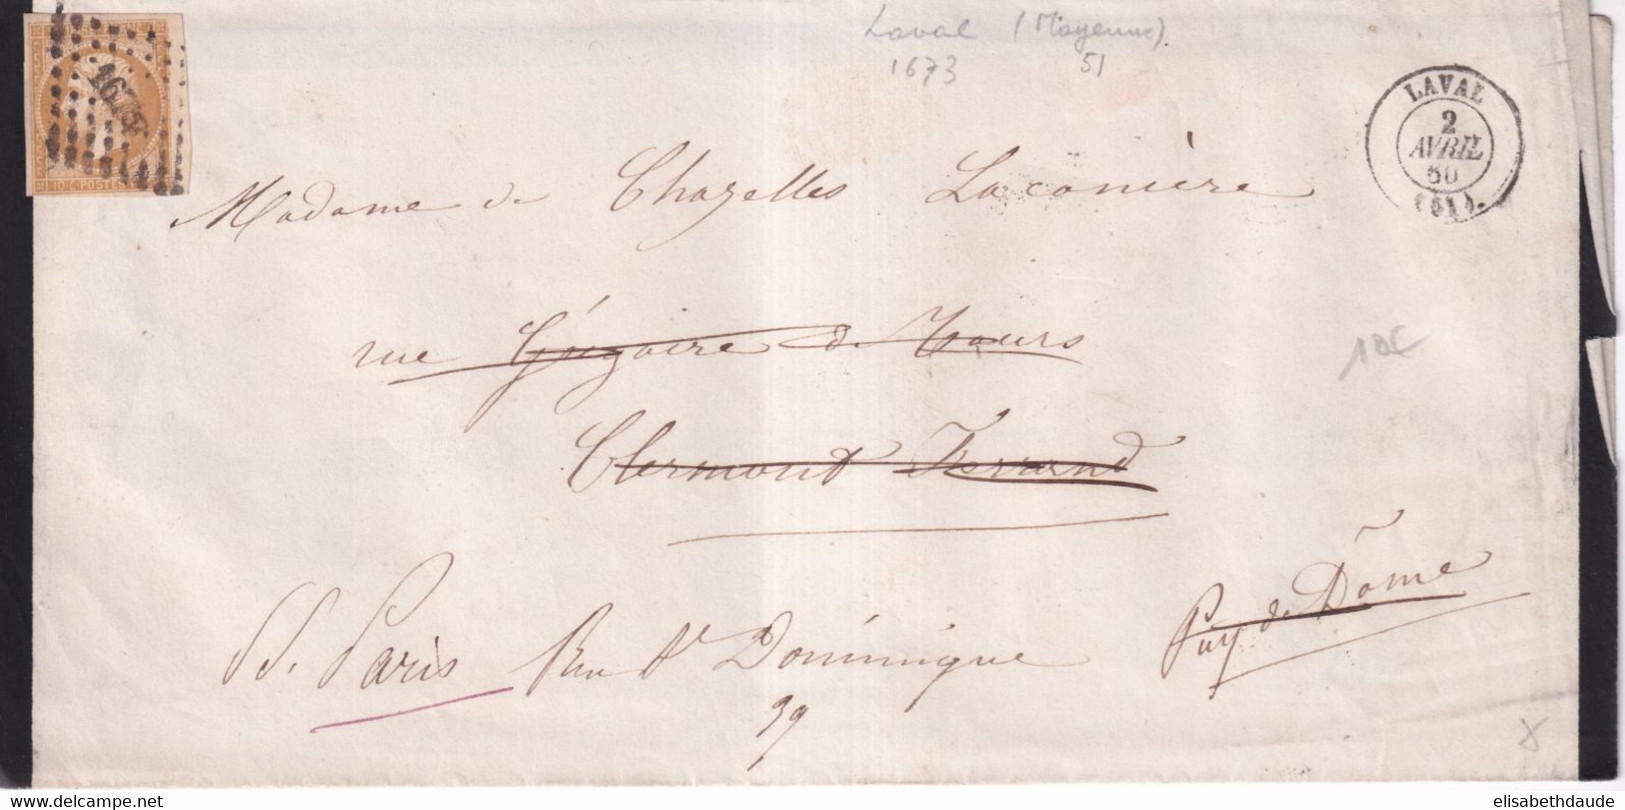 Laval (Mayenne).
1673 51
1673
10 C. POSTES
LAVAL
2
AVRIL
60
(51)
Madame de Chazelles Laconière
rue Grégoire de Tours
10€
Clermont Ferrand
Puy de Dôme
Paris Rue St Dominique
39
elisabethdaude